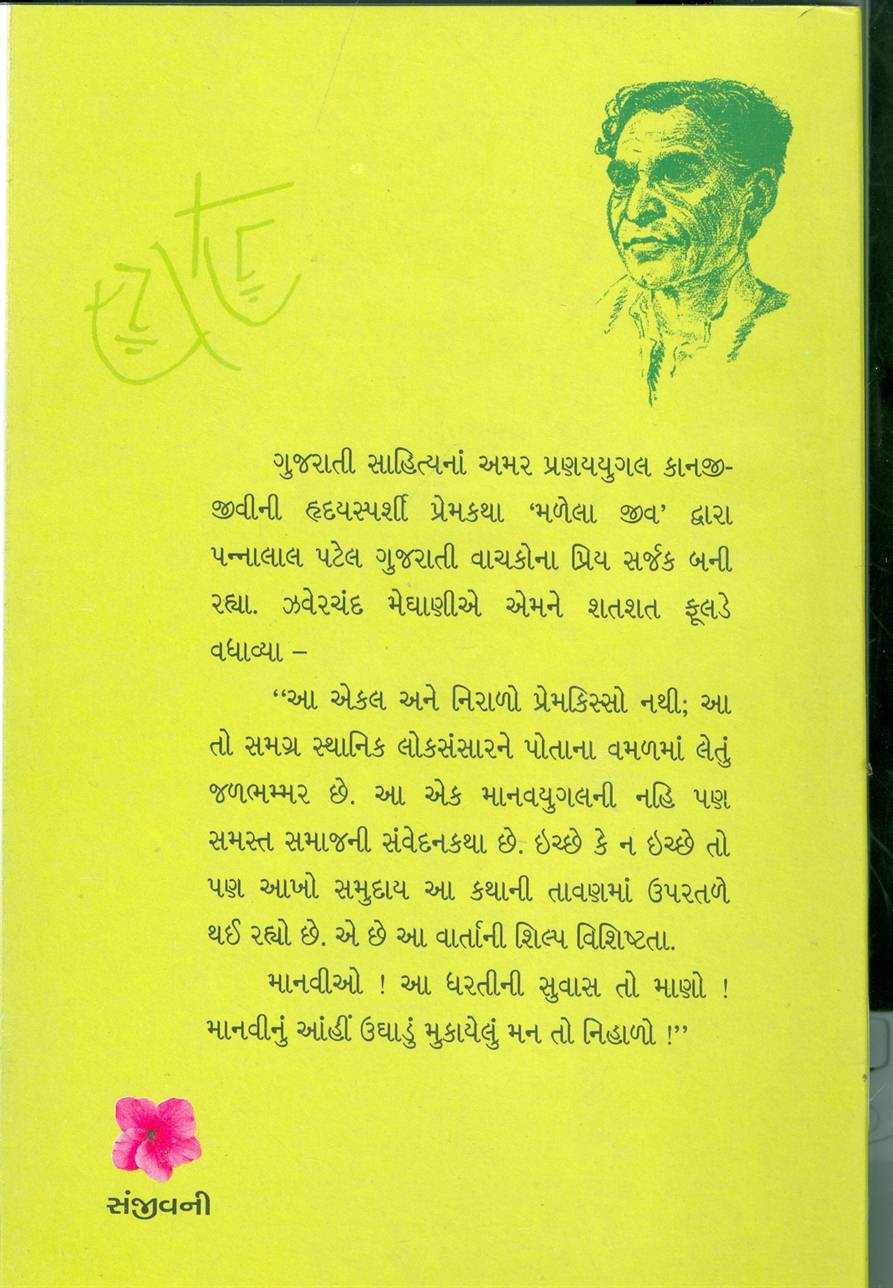 ગુજરાતી સાહિત્યનાં અમર પ્રણયયુગલ કાનજી-
જીવીની હૃદયસ્પર્શી પ્રેમકથા ‘મળેલા જીવ’ દ્વારા
પન્નાલાલ પટેલ ગુજરાતી વાચકોના પ્રિય સર્જક બની
રહ્યા. ઝવેરચંદ મેઘાણીએ એમને શતશત ફૂલડે
વધાવ્યા –
‘‘આ એકલ અને નિરાળો પ્રેમકિસ્સો નથી; આ
તો સમગ્ર સ્થાનિક લોકસંસારને પોતાના વમળમાં લેતું
જળભમ્મર છે. આ એક માનવયુગલની નહિ પણ
સમસ્ત સમાજની સંવેદનકથા છે. ઇચ્છે કે ન ઇચ્છે તો
પણ આખો સમુદાય આ કથાની તાવણમાં ઉપરતળે
થઈ રહ્યો છે. એ છે આ વાર્તાની શિલ્પ વિશિષ્ટતા.
માનવીઓ ! આ ધરતીની સુવાસ તો માણો !
માનવીનું આંહીં ઉઘાડું મુકાયેલું મન તો નિહાળો !’’
સંજીવની